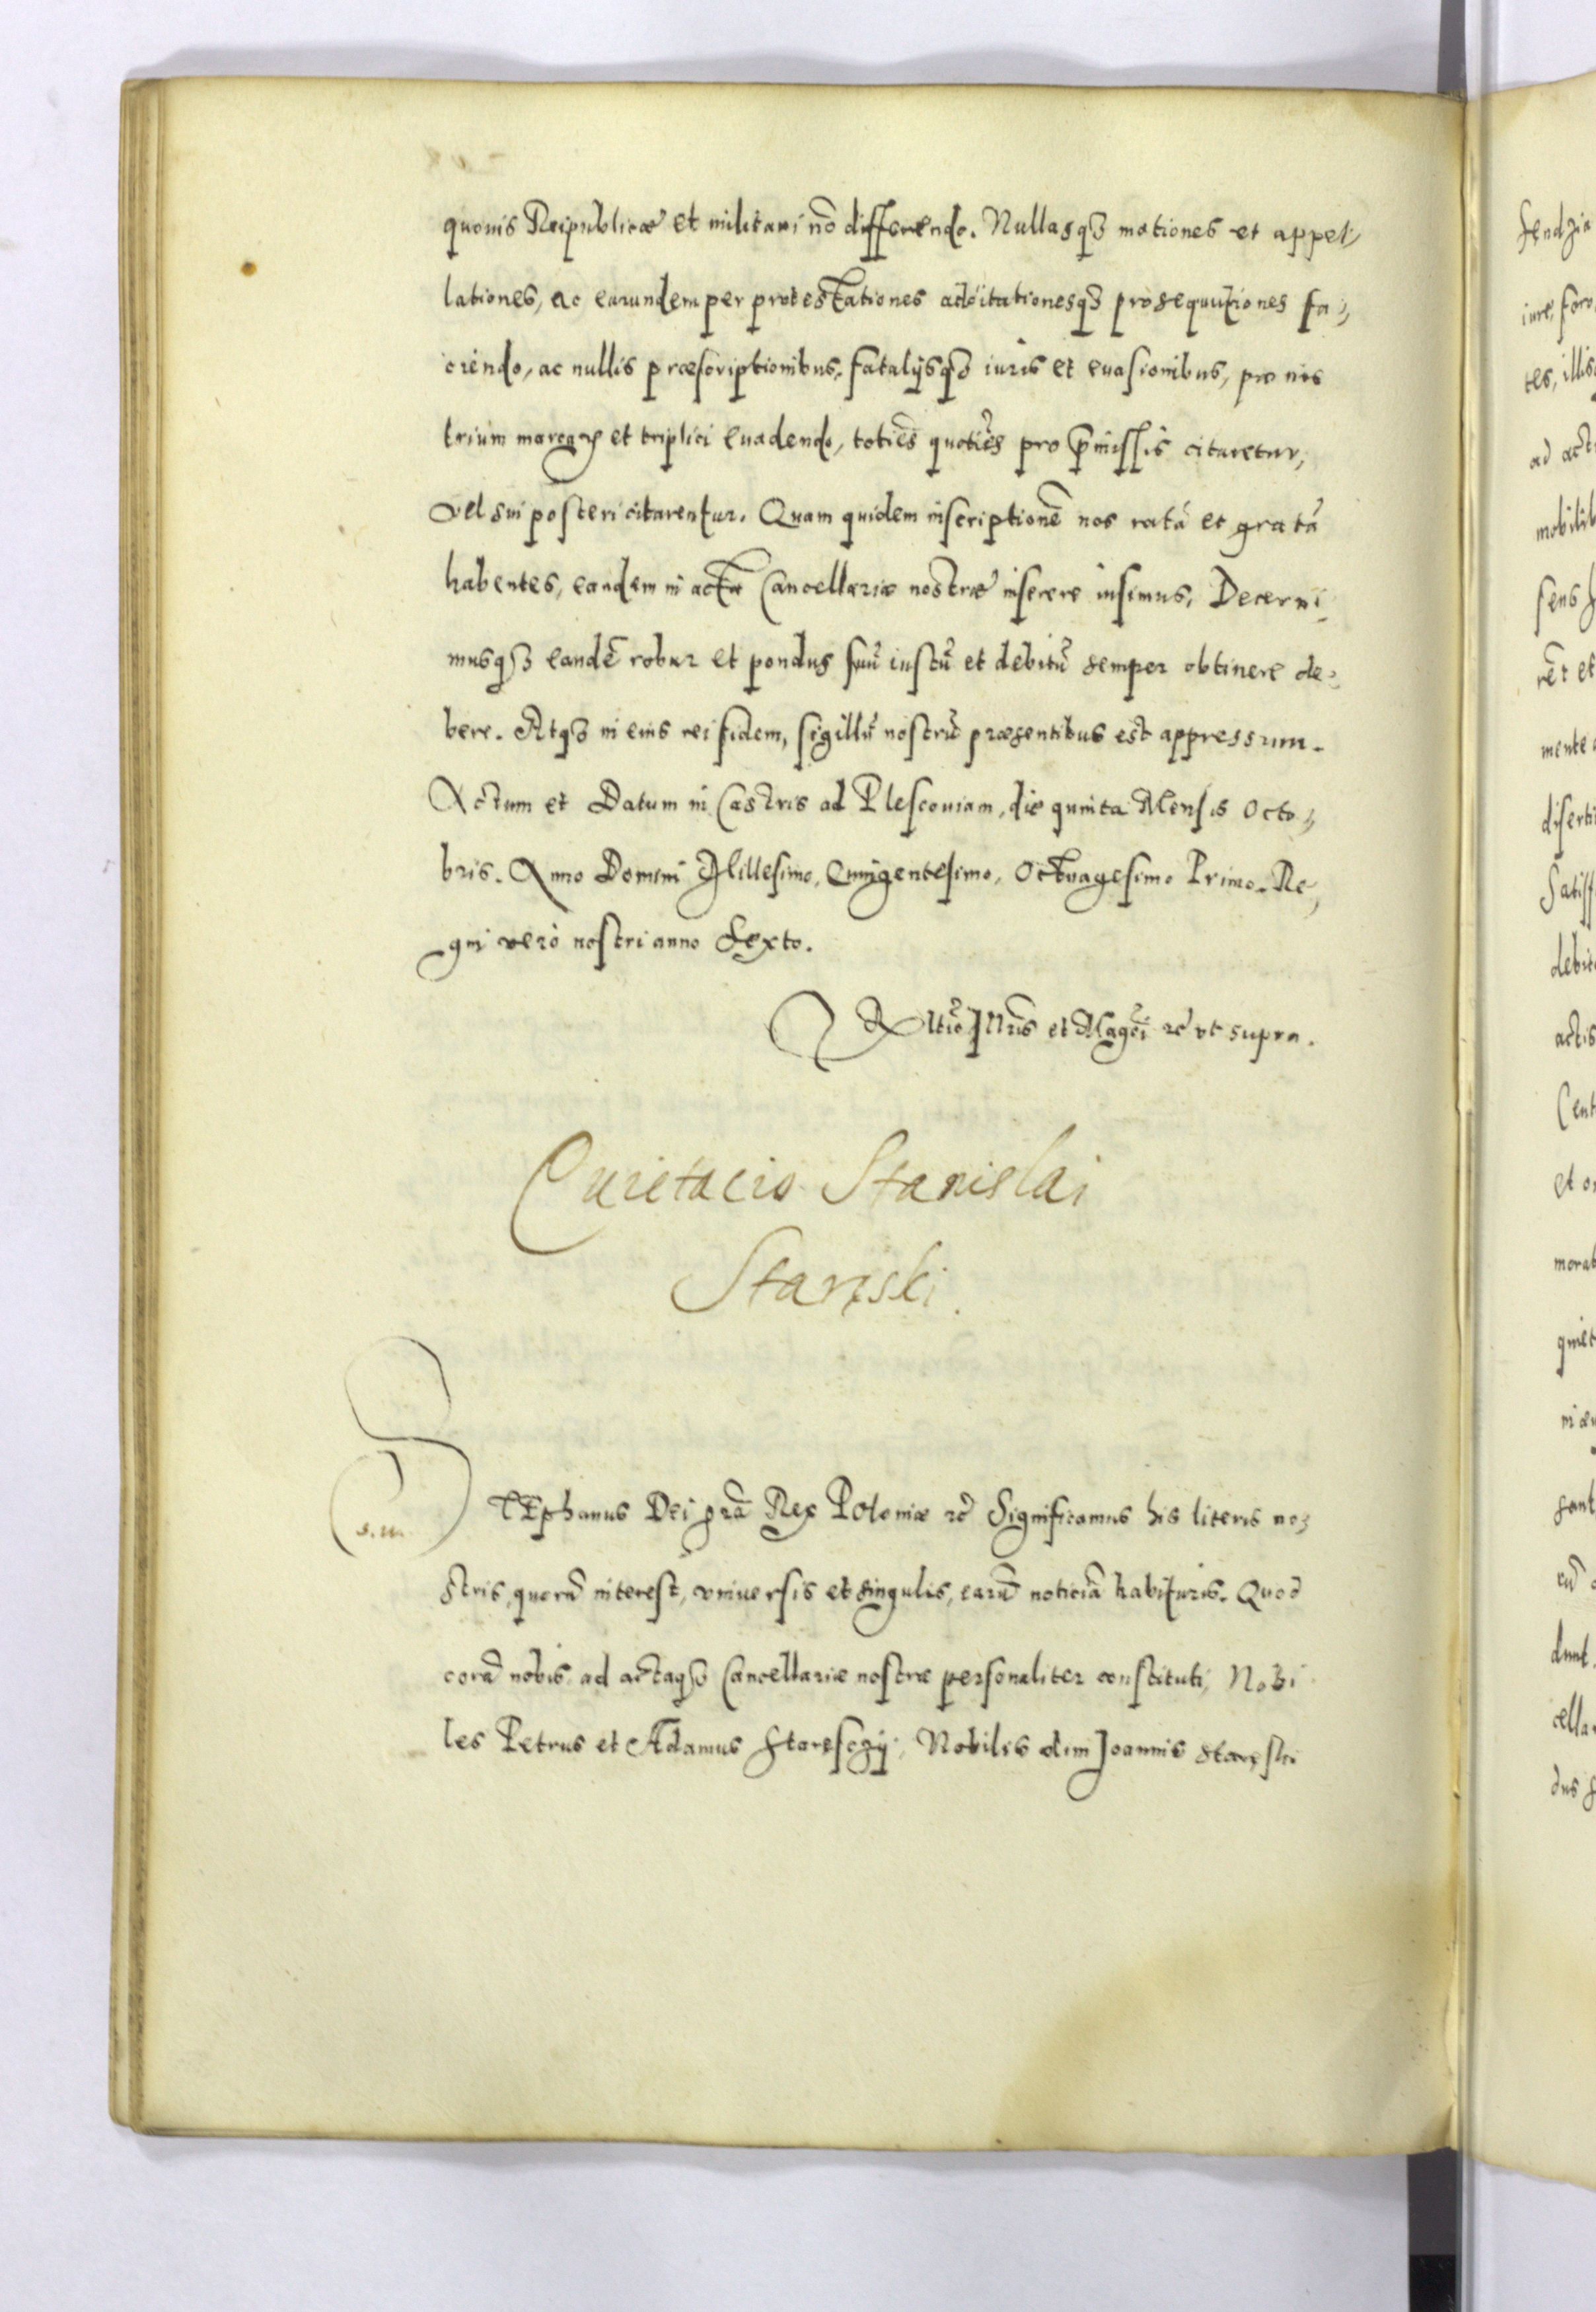 quouis Reipublicæ et militari nō differendo. Nullasqȝ motiones et appel⸗
lationes, ac earundem per protestationes adcitationesqȝ prosequutiones fa⸗
ciendo, ac nullis præscriptionibus, fatalijsqȝ iuris et euasionibus, pœnis
trium marcarꝝ et triplici euadendo, toties quoties pro p̄missis citaretur,
vel sui posteri citarentur. Quam quidem inscriptionē nos ratā et gratā
habentes, eandem in acta Cancellariæ nostræ inserere iussimus, Decerni⸗
musqȝ eandē robur et pondus suū iustū et debitū semper obtinere de⸗
bere. Atqȝ in eius rei fidem, sigillū nostrū præsentibus est appressum.
Actum et Datum in Castris ad Plescouiam, die quinta Mensis Octo⸗
bris. Anno Domini Millesimo, Quingentesimo, Octuagesimo Primo. Re⸗
gni vero nostri anno Sexto.
Illr̄is et Mag̃ci ꝛc̃ vt supra.
Quietacio Stanislai
Staręski.
s. u.
STEphanus Dei grā Rex Poloniæ ꝛc̃ Significamus his literis no⸗
stris, quorū interest, vniuersis et singulis, earū noticiā habituris. Quod
corā nobis, ad actaqȝ Cancellariæ nostræ personaliter constituti, Nobi
les Petrus et Adamus Staręsczÿ, Nobilis olim Joannis Staręski